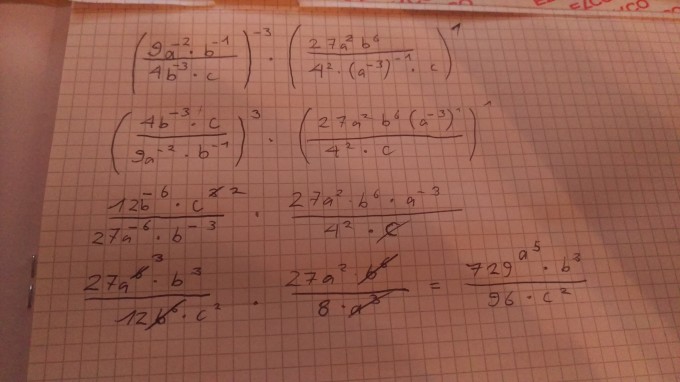 (9a⁻² · b⁻¹ / 4b⁻³ · c)⁻³ · (27a² b⁶ / 4² · (a⁻³)⁻¹ · c)¹
(4b⁻³ · c / 9a⁻² · b⁻¹)³ · (27a² b⁶ (a⁻³)¹ / 4² · c)¹
12b⁻⁶ · c² / 27a⁻⁶ · b⁻³ · 27a² · b⁶ · a⁻³ / 4² · c
27a³ · b³ / 12b⁶ · c² · 27a² · b⁶ / 8 · a³ = 729a⁵ · b³ / 96 · c²